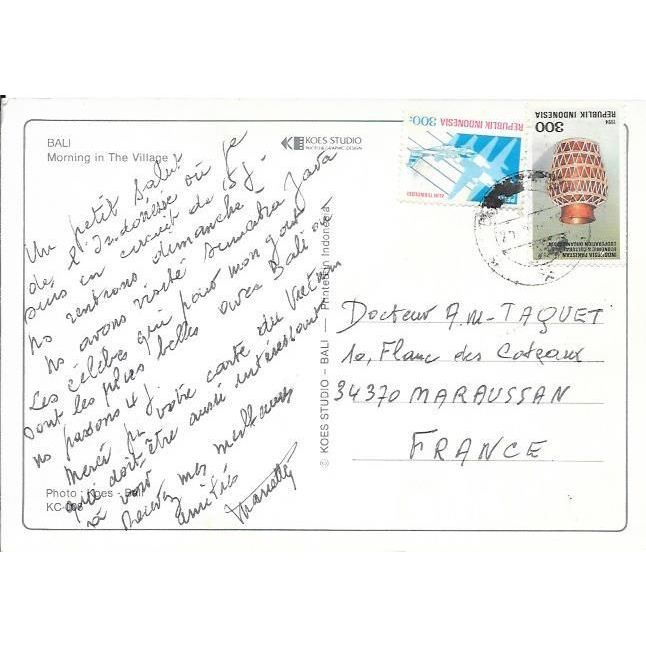 BALI
Morning in The Village
KOES STUDIO
PHOTO & GRAPHIC DESIGN
Un petit Salut
de l'Indonésie où je
suis en circuit de 15 j.
Ns rentrons dimanche
Ns avons visité Sumatra Java
Les célèbes qui pour mon goût
sont les plus belles avec Bali où
ns passons 4 j.
Merci pr votre carte du Vietnam
qui doit être aussi intéressant
à voir
Recevez mes meilleures
amitiés
Photo : Koes - Bali
KC-008
© KOES STUDIO – BALI – Printed in Indonesia
300
REPUBLIK INDONESIA
1994
300
REPUBLIK INDONESIA
INDONESIA PAKISTAN
ECONOMIC & CULTURAL
COOPERATION ORGANIZATION
Docteur A.M-TAQUET
10, Flanc des Coteaux
34370 MARAUSSAN
FRANCE